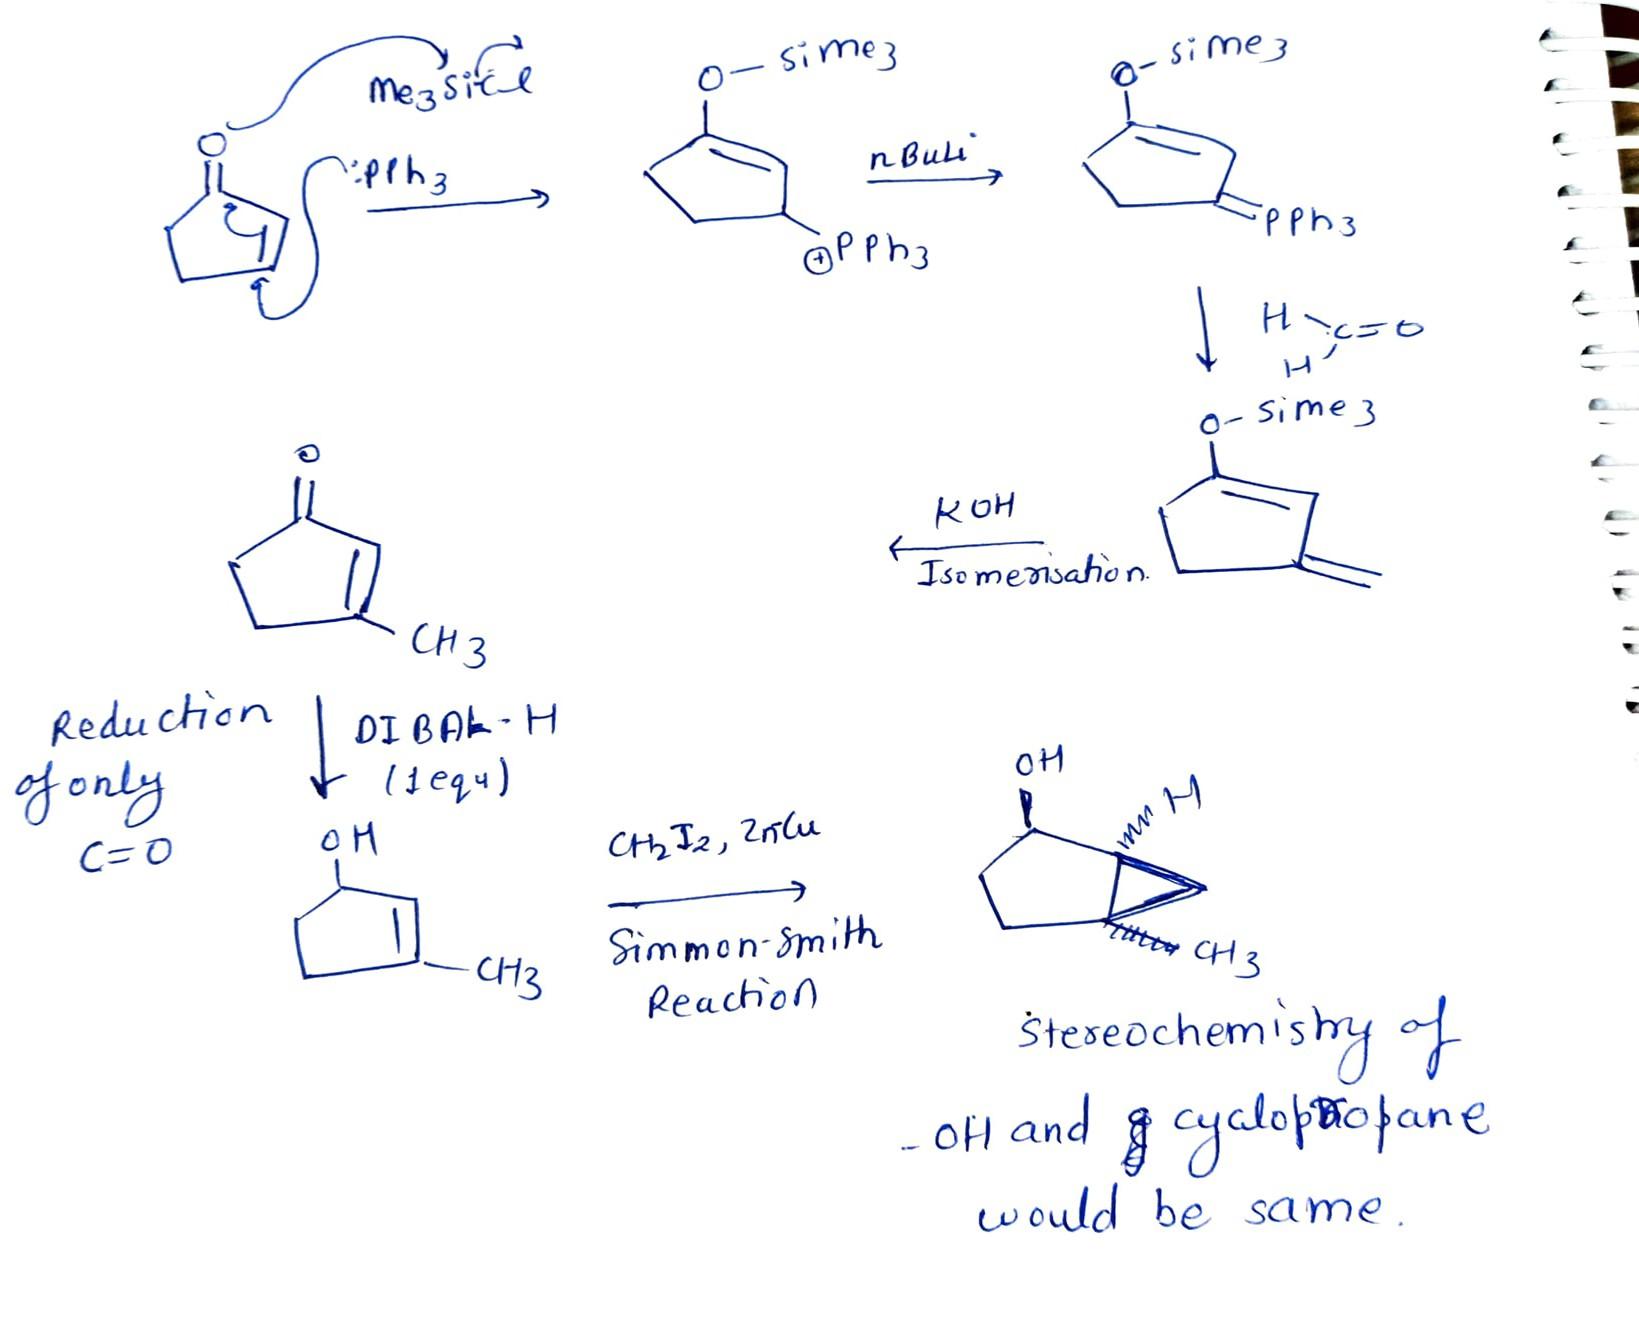 Me3SiCl
O
:PPh3
O-SiMe3
⊕PPh3
nBuLi
O-SiMe3
PPh3
H
C=O
H
O-SiMe3
KOH
Isomerisation.
O
CH3
Reduction
of only
C=O
DIBAL-H
(1equ)
OH
CH3
CH2I2, ZnCu
Simmon-Smith
Reaction
OH
H
CH3
Stereochemistry of
-OH and cyclopropane
would be same.